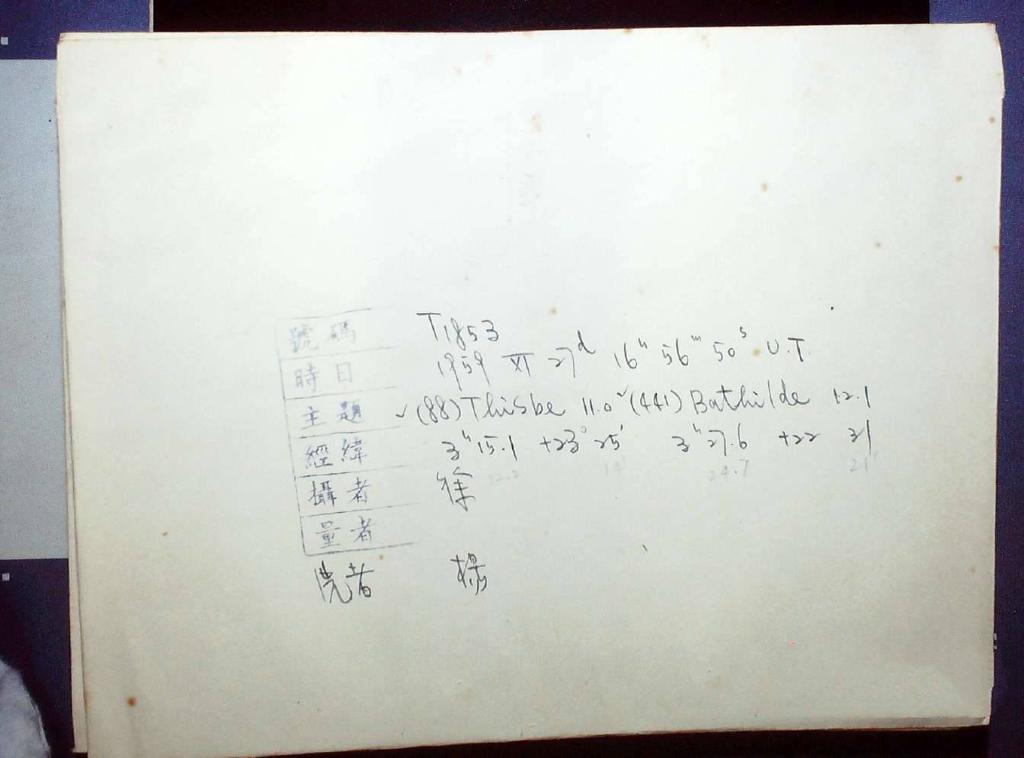 號碼 T1853
時日 1959 XI 27d 16h 56m 50s U.T.
主題 ✓(88) Thisbe 11.0 ✓(441) Bathilde 12.1
經緯 3h 15.1 +23° 25' 3h 27.6 +22 31
12.2 14' 24.7 21'
攝者 徐
量者
洗者 楊